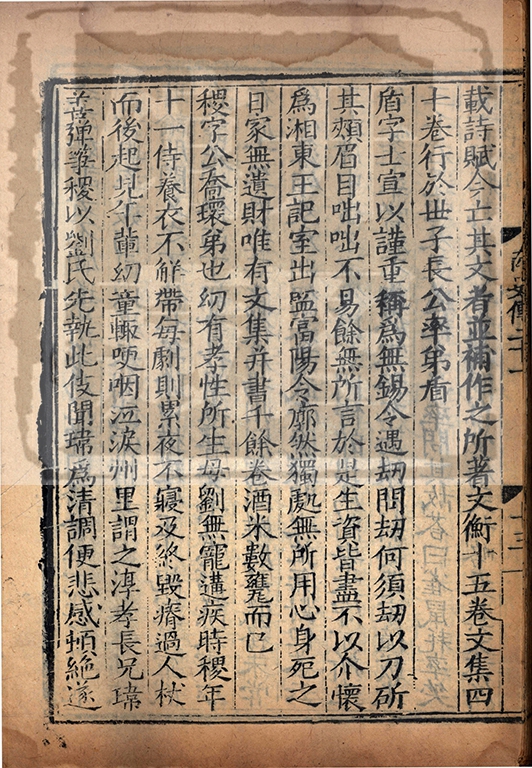 載詩賦今亡其文者並補作之所著文衡十五卷文集四
十卷行於世子長公率弟盾
盾字士宣以謹重稱爲無錫令遇刼問刼何須刼以刀斫
其頰眉目咄咄不易餘無所言於是生資皆盡不以介懷
爲湘東王記室出監富陽令廓然獨處無所用心身死之
日家無遺財唯有文集并書千餘卷酒米數甕而已
稷字公喬瓌弟也幼有孝性所生母劉無寵遘疾時稷年
十一侍養衣不解帶每劇則累夜不寢及終毀瘠過人杖
而後起見年輩幼童輙哽咽泣淚州里謂之淳孝長兄瑋
善彈箏稷以劉氏先執此伎聞瑋爲清調便悲感頓絶遂